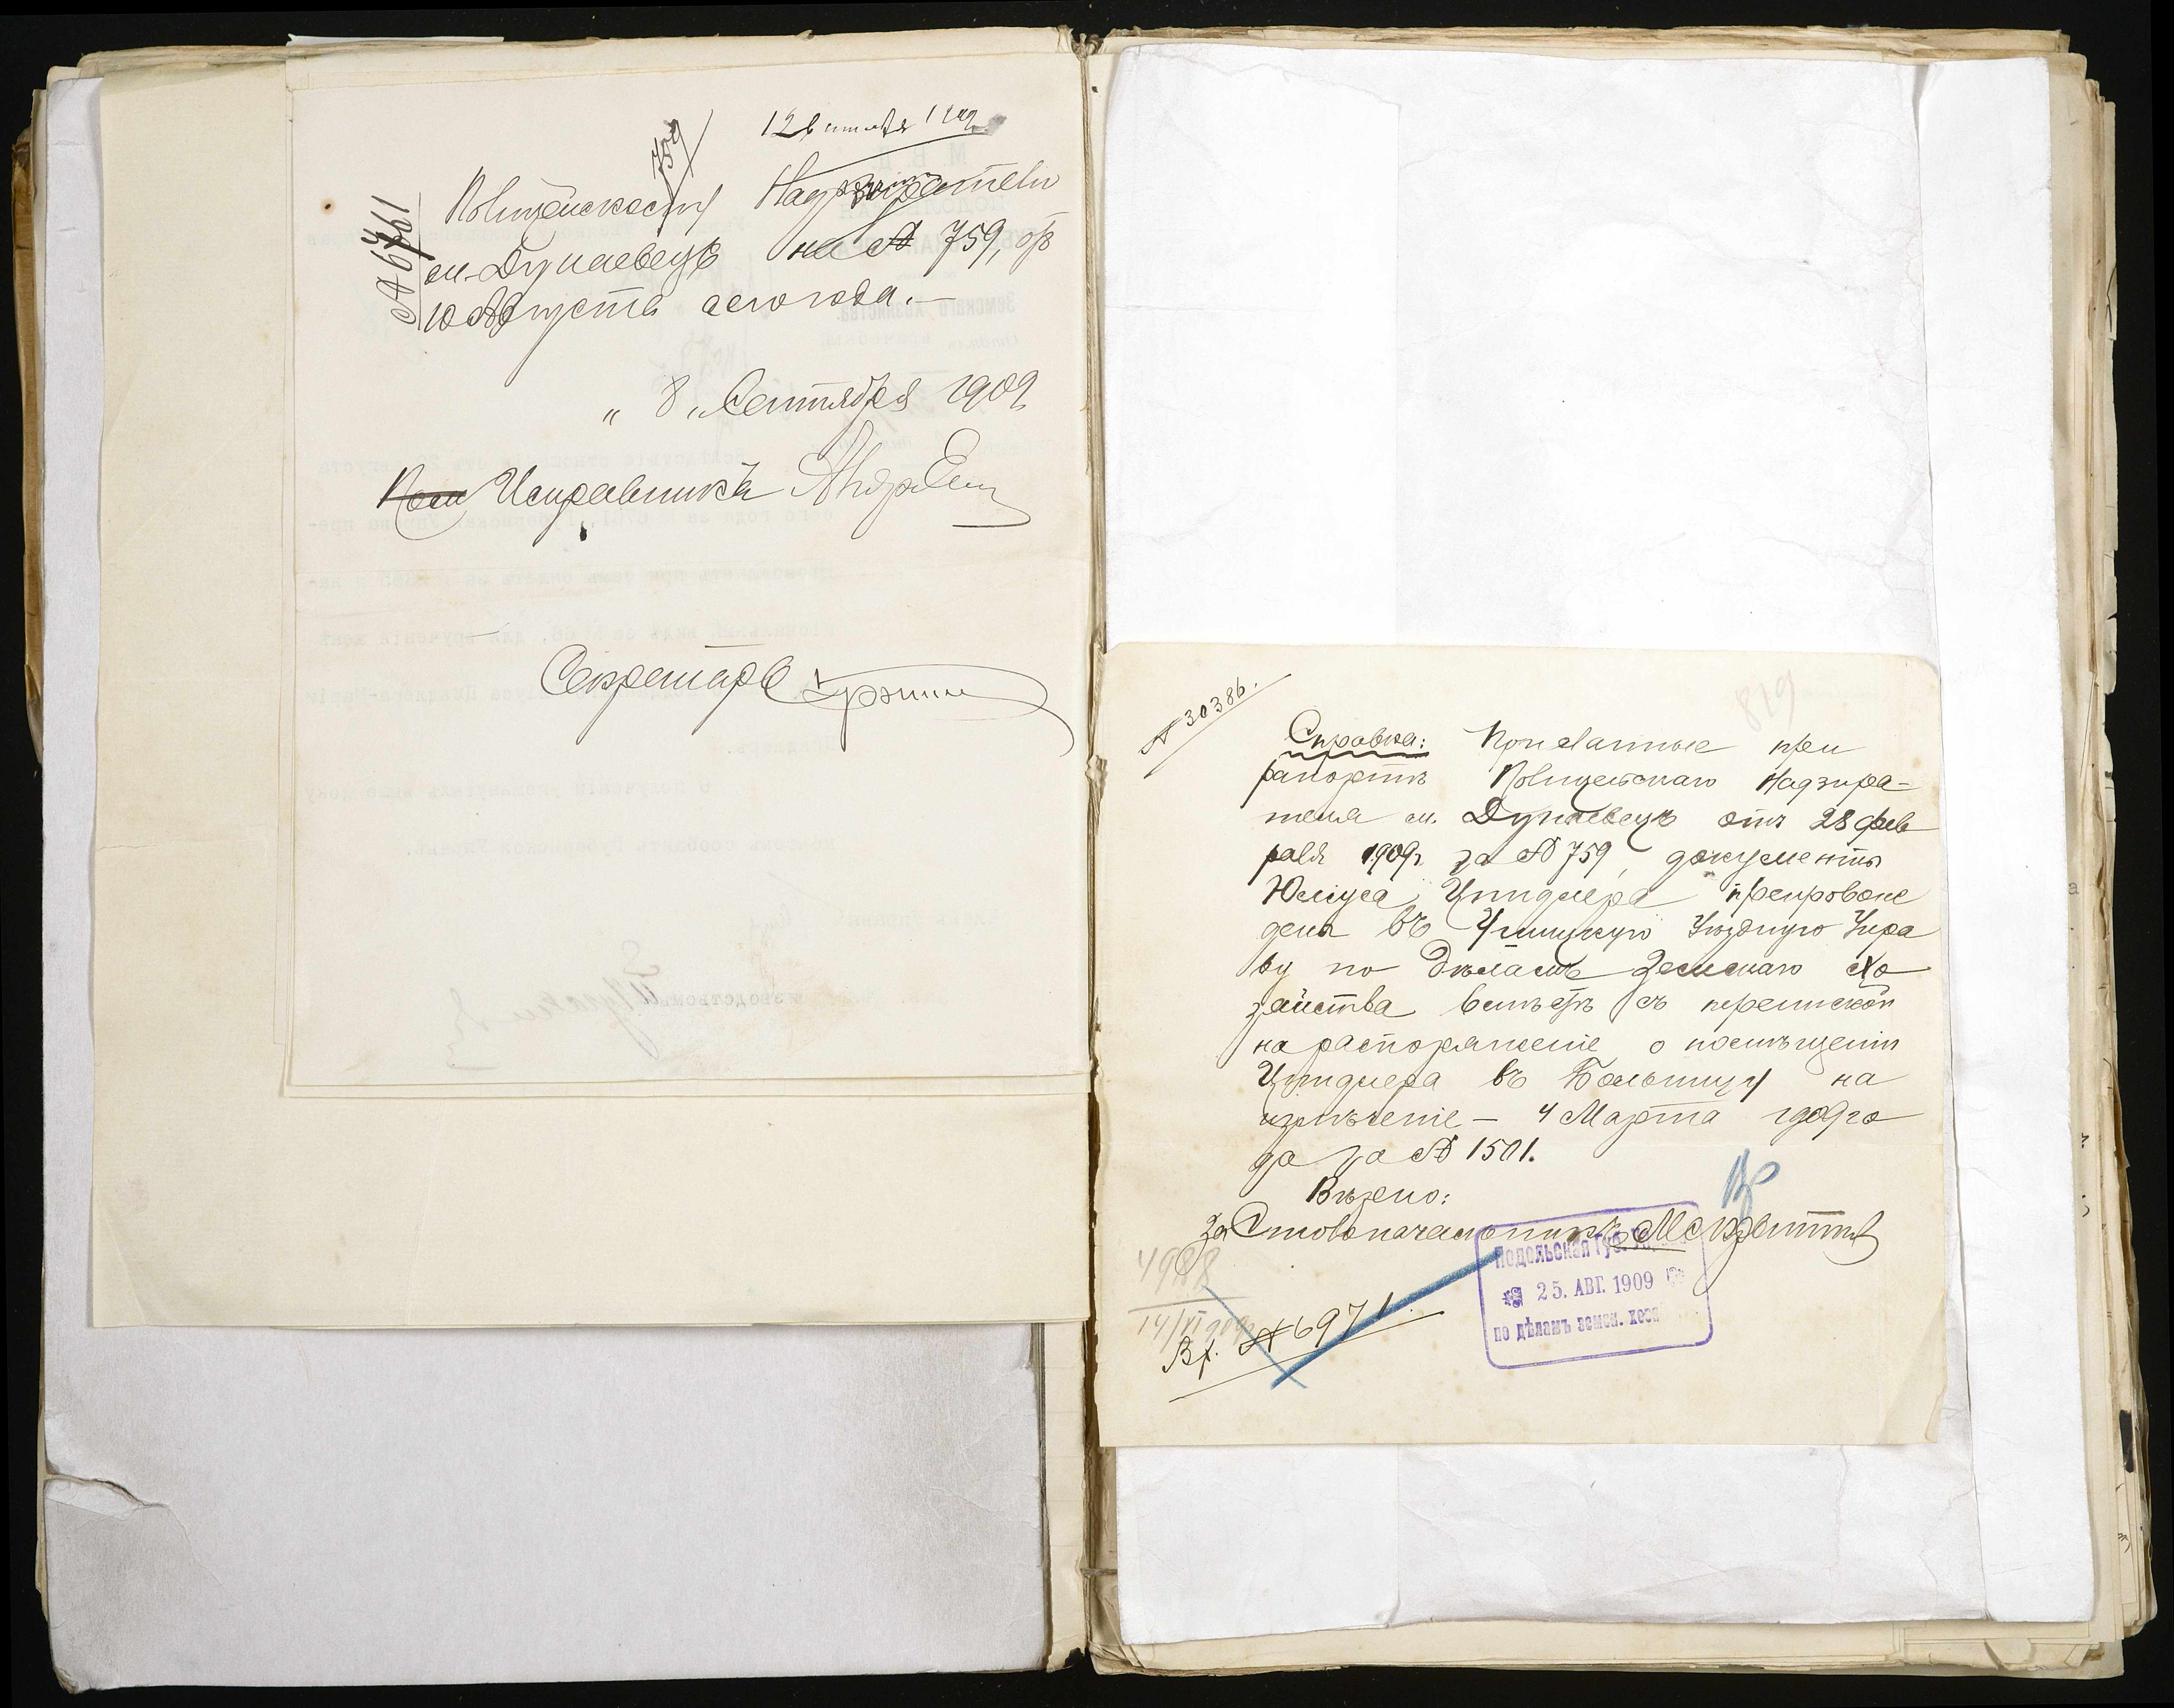 759
Полицейскому Надзирателю
м. Дунаевецъ на № 759, отъ
10 Августа сего года.—
„ 8 „ Сентября 1909
Исправника
Секретарь
№ 30386.
819
Справка: Присланные при
рапортѣ Полицейскаго Надзира-
теля м. Дунаевецъ отъ 28 фев
раля 1909г. за № 759, документы
Юлiуса Циндлера препровож
дены въ Ушицкую Уѣздную Упра
ву по Дѣламъ Земскаго Хо
зяйства вмѣстѣ съ перепиской
на распоряженiе о помѣщенiи
Циндлера въ Больницу на
излѣченiе — 4 Марта 1909 го
да за № 1501.
Вѣрно:
За Столоначальника
Подольская Губ.
25. АВГ. 1909
по дѣламъ земск. хозя
4988
14/VI 909г
Вх. № 6971.